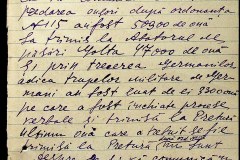 predarea ouălor după ordonanta
No 115 au fost 50900 de ouă
Sa trimis la Abatorul de
păsări Yolta 47000 de ouă
Și prin trecerea Germanilor
adica trupelor militare de Ger-
mani au fost luat de ei 3300 ouă
pe care a fost închiate procese
verbale și trimisă la Pretură
Ultimii ouă care a trebuit se fie
trimisă la Pretură sunt
despre